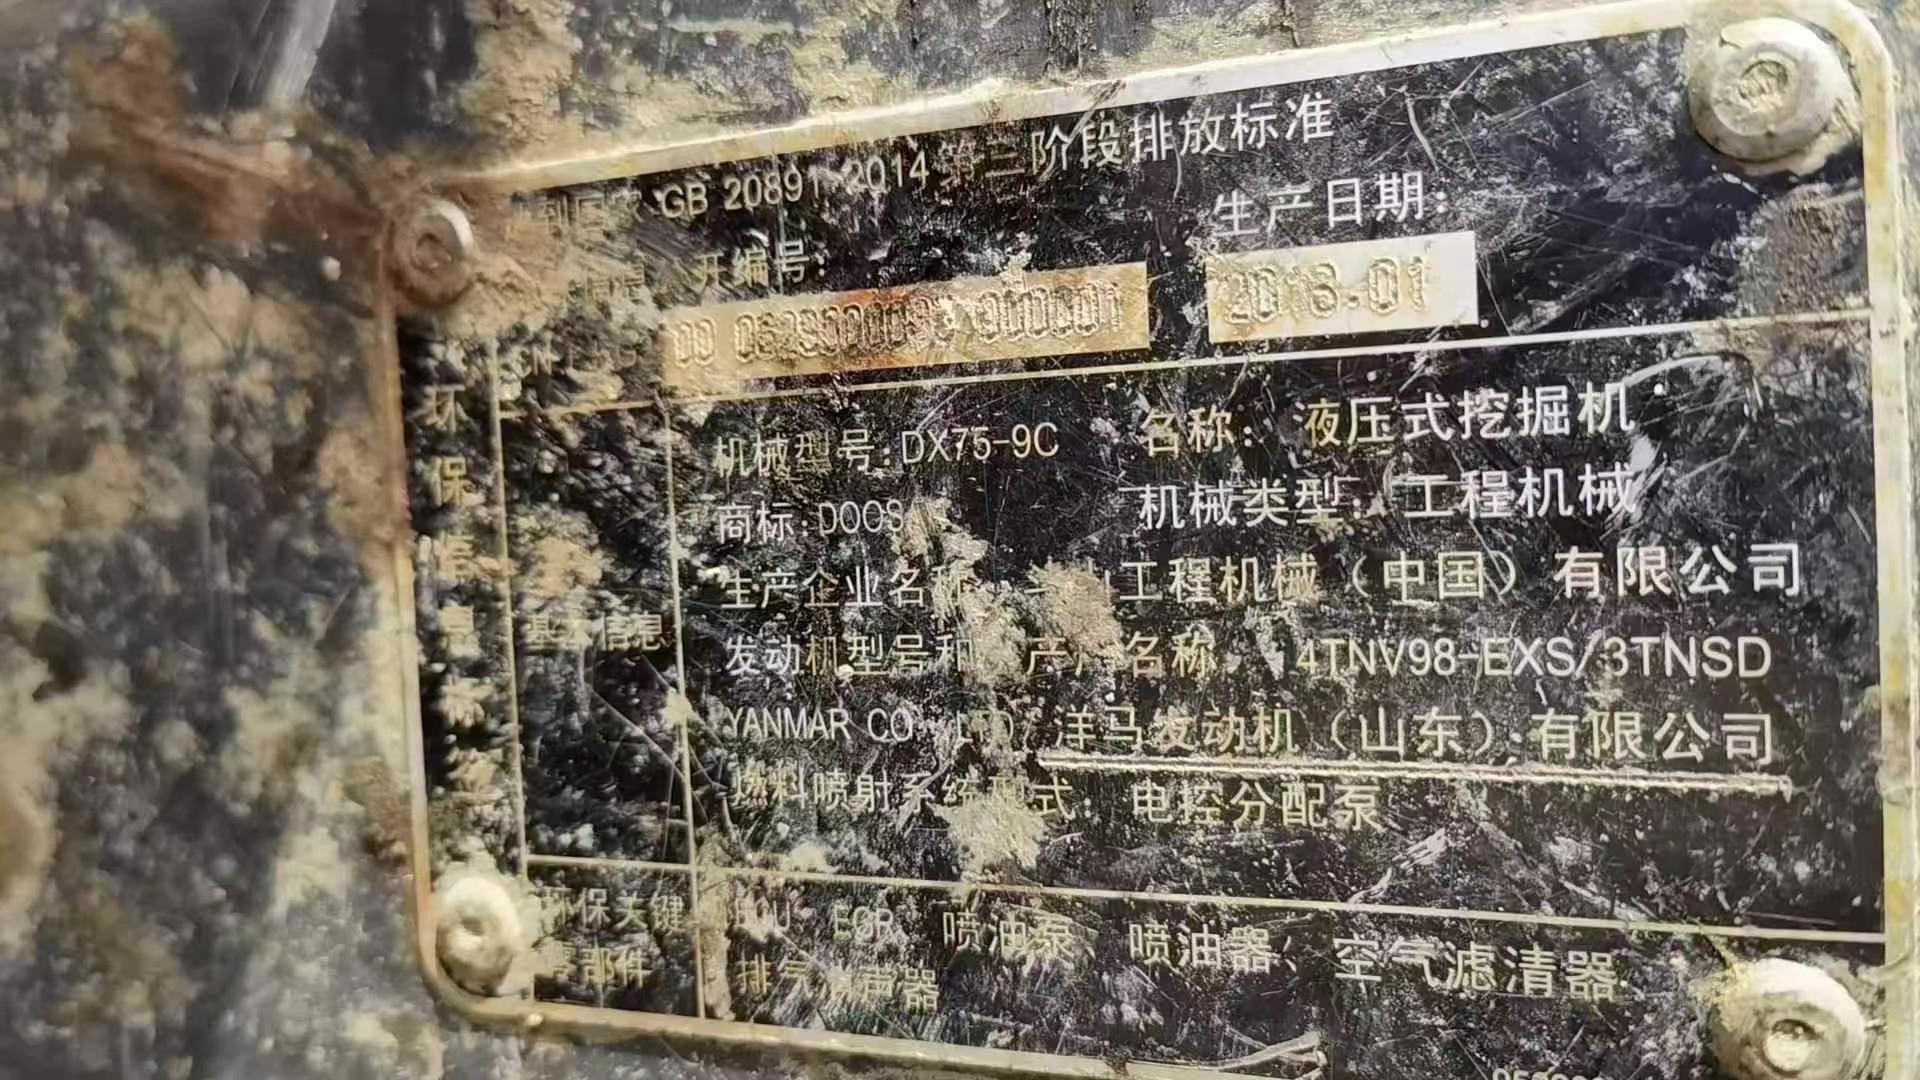 GB 20891-2014 第三阶段排放标准
开编号:
生产日期:
2018.01
环保信息
机械型号: DX75-9C 名称: 液压式挖掘机
商标: DOOS
机械类型: 工程机械
生产企业名称 工程机械（中国）有限公司
基本信息
发动机型号和 产 名称 4TNV98-EXS/3TNSD
YANMAR CO LTD/洋马发动机（山东）有限公司
燃料喷射系统 式: 电控分配泵
环保关键 ECU EGR 喷油泵、喷油器、空气滤清器
部件 排气 声器